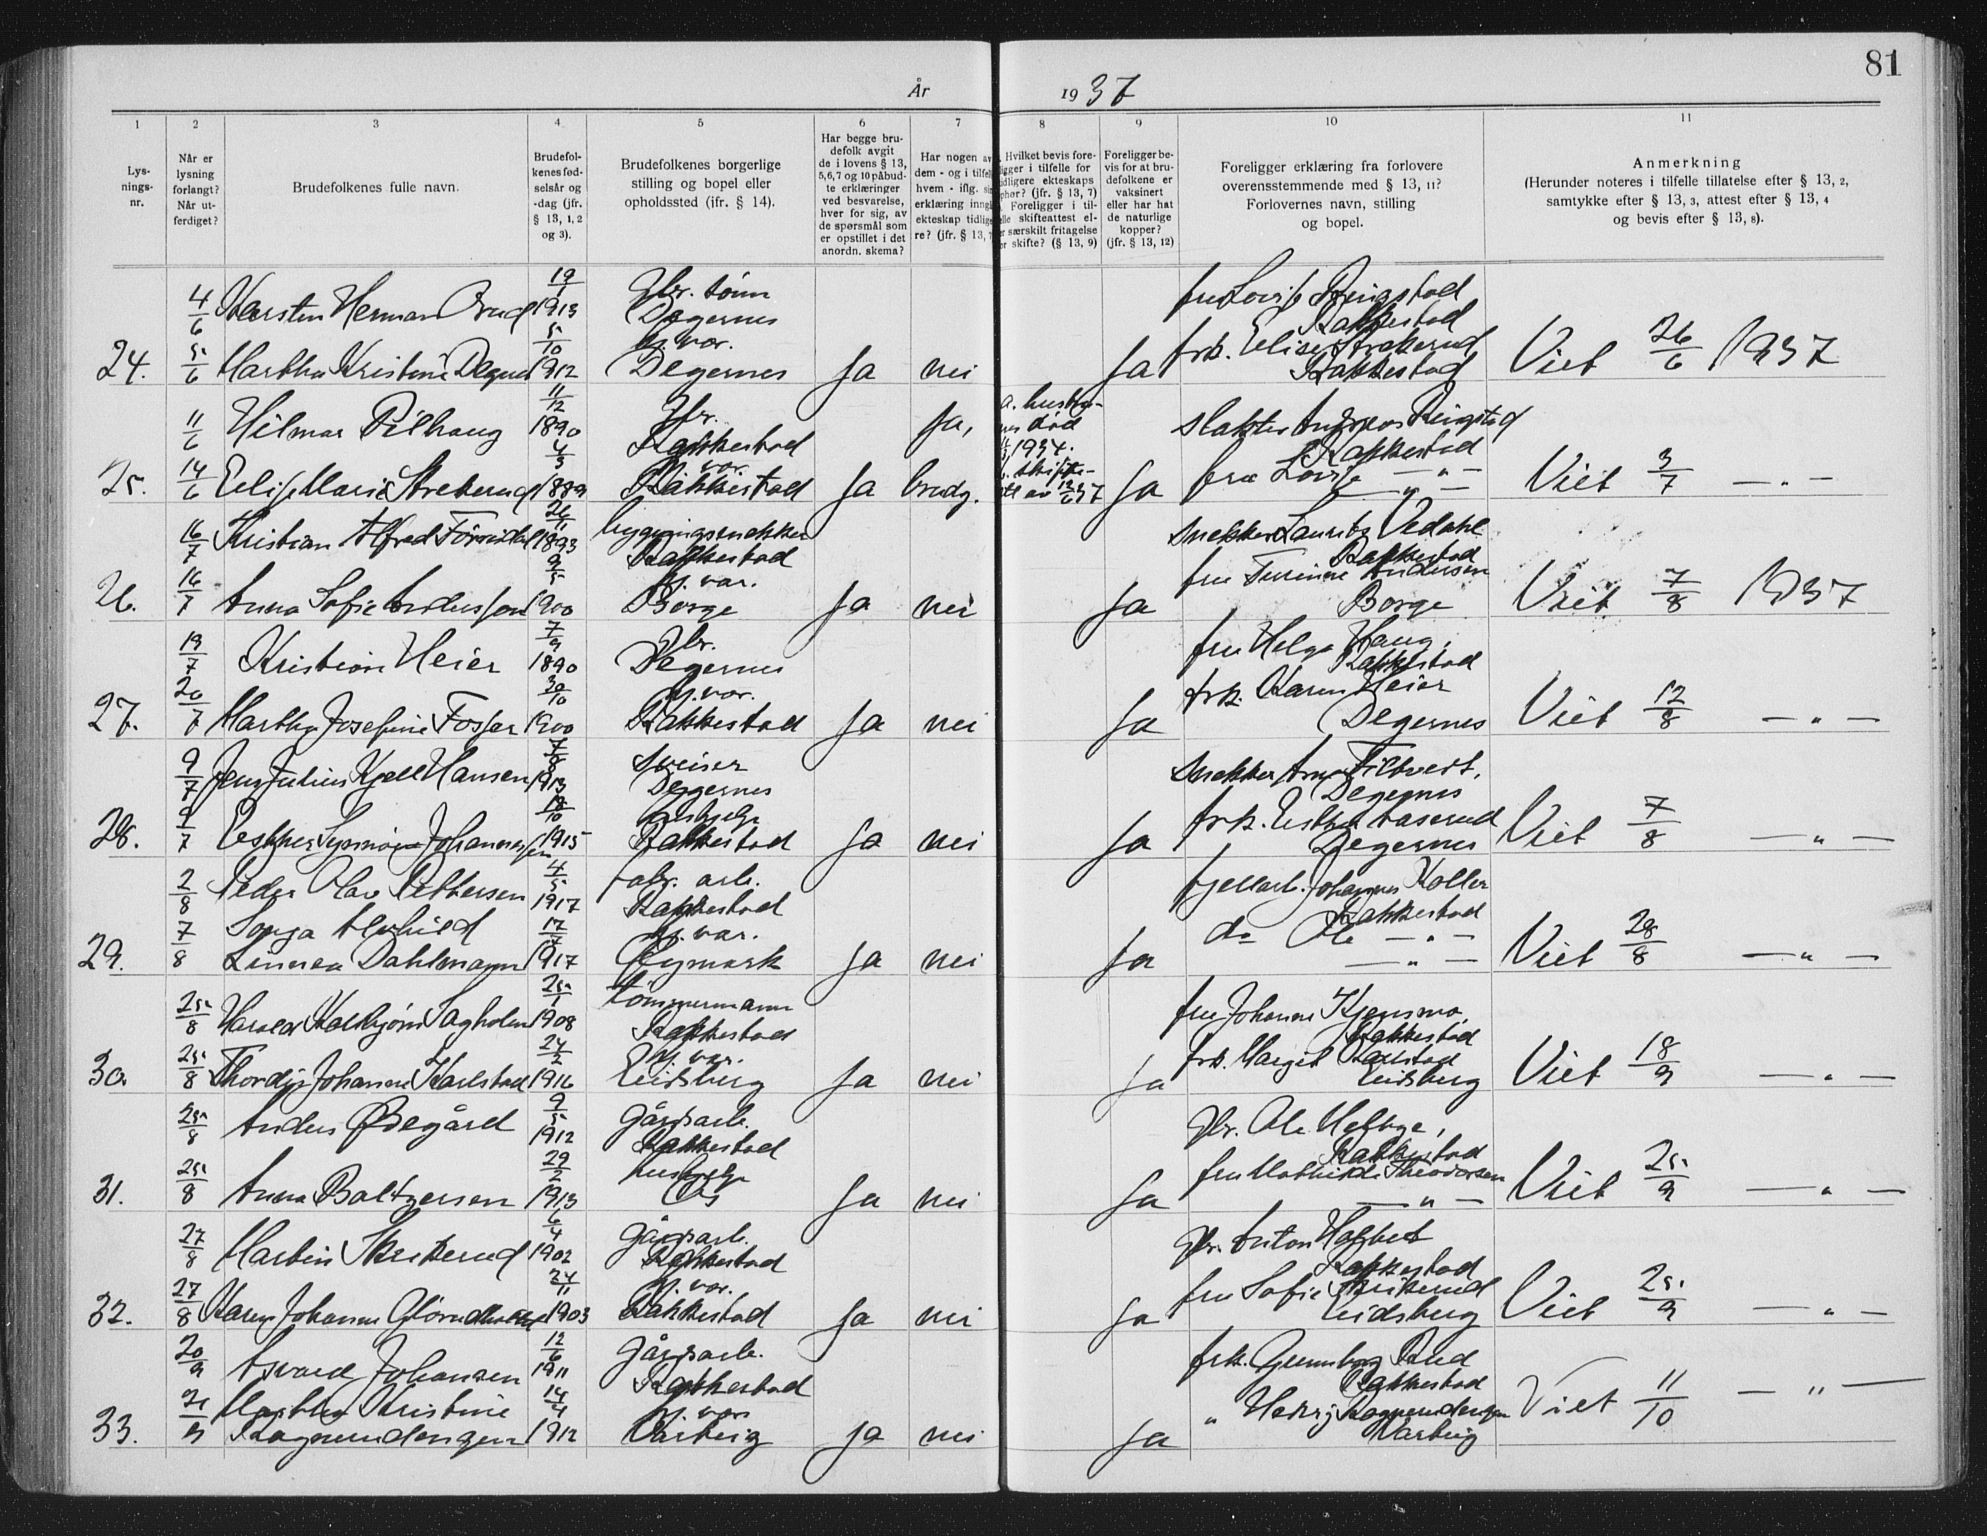 81
År 1937
1 2 3 4 5 6 7 8 9 10 11
Lys-
nings-
nr.
Når er
lysning
forlangt?
Når ut-
ferdiget?
Brudefolkenes fulle navn.
Brudefol-
kenes fød-
selsår og
-dag (jfr.
§ 13, 1, 2
og 3).
Brudefolkenes borgerlige
stilling og bopel eller
opholdssted (ifr. § 14).
Har begge bru-
defolk avgit
de i lovens § 13,
5,6,7 og 10 påbud-
te erklæringer
ved besvarelse,
hver for sig, av
de spørsmål som
er opstillet i det
anordn. skema?
Har nogen av
dem - og i tilfelle
hvem - iflg. sin
erklæring inngå
ekteskap tidlige
re? (jfr. § 13,
Hvilket bevis fore-
ligger i tilfelle for
tidligere ekteskaps
ophør? (jfr. § 13, 7)
Foreligger i til-
felle skifteattest el-
er særskilt fritagelse
or skifte? (§ 13, 9)
Foreligger be-
vis for at bru-
defolkene er
vaksinert
eller har hat
de naturlige
kopper?
(jfr. § 13, 12)
Foreligger erklæring fra forlovere
overensstemmende med § 13, 11?
Forlovernes navn, stilling
og bopel.
Anmerkning
(Herunder noteres i tilfelle tillatelse efter § 13, 2,
samtykke efter § 13, 3, attest efter § 13, 4
og bevis efter § 13, 8).
4/6 Karsten Herman Brud 19/1 1913 Gbr. sønn Degernes fru Lovise Ringstad Rakkestad
24. 5/6 Martha Kristine Degnes 5/10 1912 hj. vær. Degernes Ja nei Ja frk. Elise Strekerud Rakkestad Viet 26/6 1937
11/6 Hilmar Pilhaug 11/12 1890 Gbr. Rakkestad ja, a. hustru- død 1934. slakter Andreas Ringstad Rakkestad
25. 14/6 Elise Marie Strekerud 4/3 1889 hj. vær. Rakkestad Ja brudg. skifte- av 12/6 37 Ja fru Lovise — " — Viet 3/7 — " —
16/7 Kristian Alfred 26/11 1893 bygningssnekker Rakkestad snekker Lauritz Vedahl Rakkestad
26. 16/7 Anna Sofie Andersen 9/5 1900 hj. vær. Borge Ja nei Ja fru Andersen Borge Viet 7/8 1937
19/7 Kristian Heier 7/9 1890 Gbr. Degernes fru Helga Haug, Rakkestad
27. 20/7 Martha Josefine Fosser 30/10 1900 hj. vær. Rakkestad Ja nei Ja frk. Karen Heier Degernes Viet 12/8 — " —
9/7 Jens Julius Kjell Hansen 7/8 1913 sveiser Degernes snekker Arne Degernes
28. 9/7 Esther Synnøve Johannessen 18/10 1915 hushjelp Rakkestad Ja nei Ja frk. Esther Degernes Viet 7/8 — " —
2/8 Peder Olav Pettersen 4/5 1917 fabr. arb. Rakkestad fjellarb. Johannes Koller Rakkestad
7/8 Sonja Alvhild 17/7 hj. vær. do Ole — " —
29. Linnea Dahlmann 1917 Øymark Ja nei Ja — " — Viet 28/8 — " —
25/8 Harald Kolbjørn Sagholen 25/1 1908 tømmermann Rakkestad fru Johanne Kjensmo, Rakkestad
30. 25/8 Thordis Johanne Karlstad 24/2 1916 hj. vær. Eidsberg Ja nei Ja frk. Margit Karlstad Eidsberg Viet 18/9 — " —
25/8 Anders Ødegård 9/5 1912 gårdsarb. Rakkestad Gbr. Ole Heltvge, Rakkestad
31. 25/8 Anna Baltzersen 29/2 1913 hushjelp Os Ja nei Ja fru Mathilde Theodorsen — " — Viet 25/9 — " —
27/8 Martin Skrikerud 6/4 1902 gårdsarb. Rakkestad Gbr. Anton Rakkestad
32. 27/8 Karen Johanne 24/11 1903 hj. vær. Rakkestad Ja nei Ja fru Sofie Skrikerud Eidsberg Viet 25/9 — " —
20/9 Asvald Johansen 12/6 1911 gårdsarb. Rakkestad frk. Gunnborg Rud Rakkestad
21/9 Martha Kristine 14/4 hj. vær. " Hedvig Viet 11/10 — " —
33. Ragnendengen 1912 Varteig Ja nei Ja Varteig